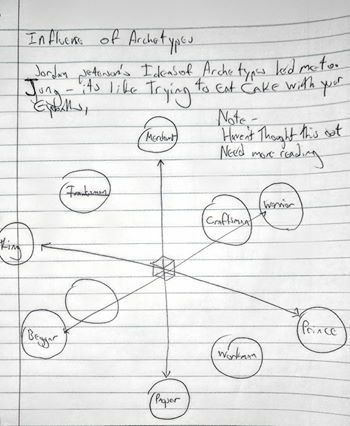 Influens of Archetypes
Jordan Peterson's Ideas of Archetypes led me to
Jung - its like Trying to Eat Cake with your
Note -
Havent Thought this out
Need more reading
Merchant
Craftsman
Warrior
King
Beggar
Prince
Workman